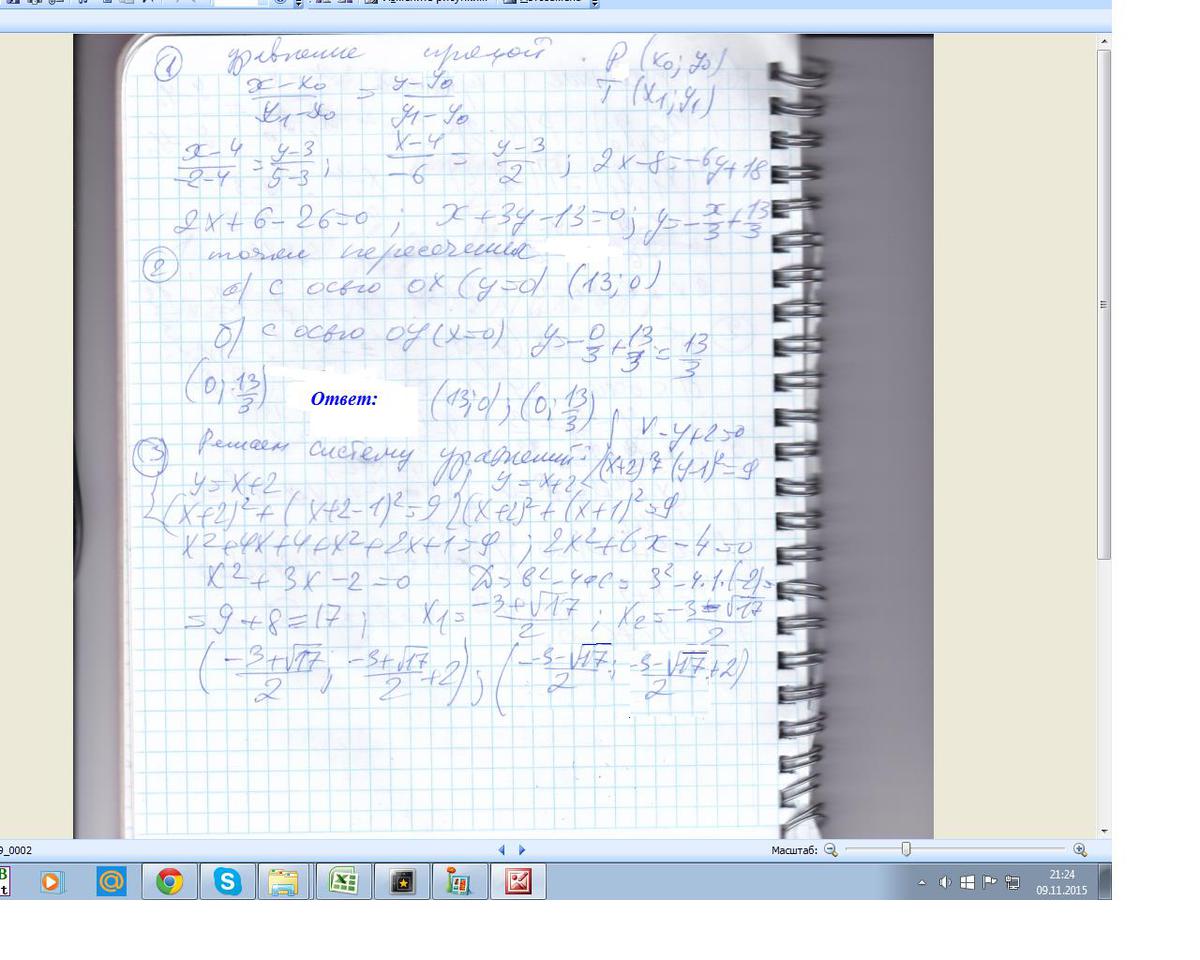 ① уравнение прямой . P (x₀; y₀)
(x – x₀)/(x₁ – x₀) = (y – y₀)/(y₁ – y₀) T (x₁; y₁)
(x – 4)/(-2 – 4) = (y – 3)/(5 – 3); (x – 4)/(-6) = (y – 3)/2; 2x – 8 = –6y + 18
2x + 6 – 26 = 0; x + 3y – 13 = 0; y = –x/3 + 13/3
② точки пересечения
а) с осью OX (y=0) (13; 0)
б) с осью OY (x=0) y = –0/3 + 13/3 = 13/3
(0; 13/3) Ответ: (13; 0); (0; 13/3)
③ Решаем систему уравнений: { x – y + 2 = 0
(x+2)² + (y–1)² = 9
{ y = x+2 { y = x+2
(x+2)² + (x+2–1)² = 9 (x+2)² + (x+1)² = 9
x² + 4x + 4 + x² + 2x + 1 = 9 ; 2x² + 6x – 4 = 0
x² + 3x – 2 = 0 D = b² – 4ac = 3² – 4·1·(–2) =
= 9 + 8 = 17; x₁ = (–3+√17)/2 ; x₂ = (–3–√17)/2
((–3+√17)/2 ; (–3+√17)/2 + 2); ((–3–√17)/2 ; (–3–√17)/2 + 2)
9_0002
Масштаб:
21:24
09.11.2015